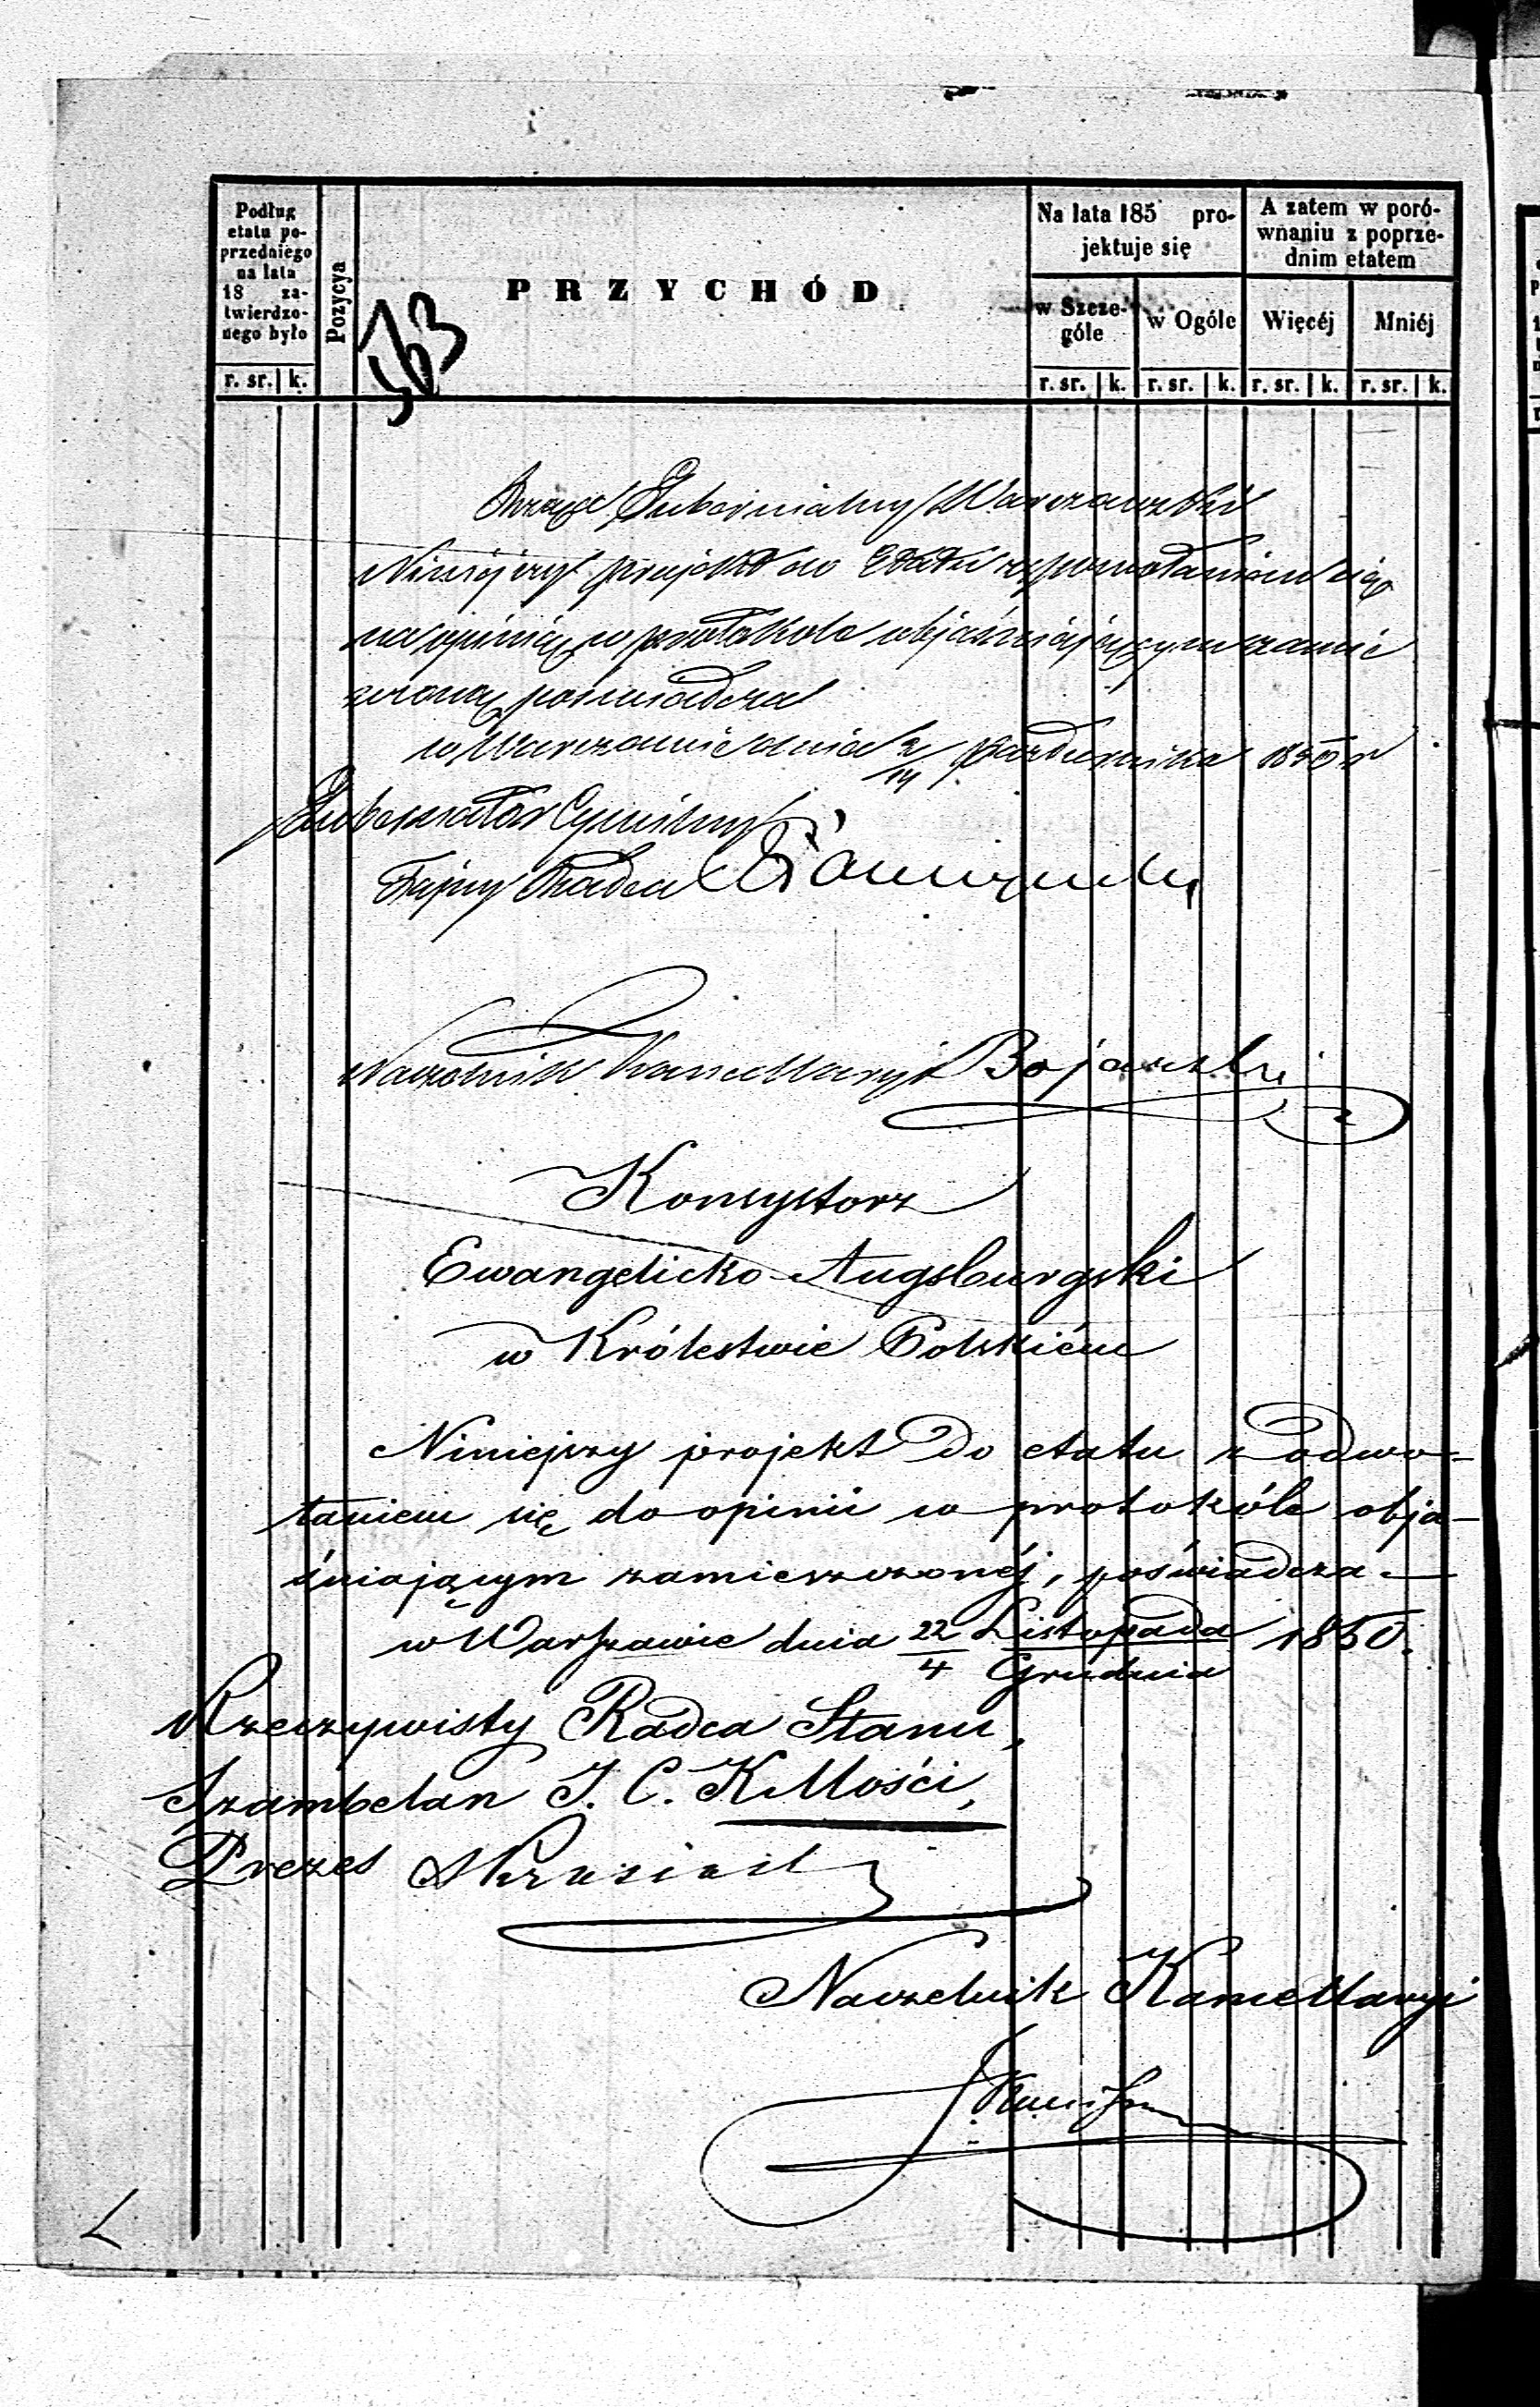 Podług
etatu po-
przedniego
na lata
18 za-
twierdzo-
nego było
r. sr. k.
Pozycya
PRZYCHÓD
Na lata 185 pro-
jektuje się
w Szcze-
góle
r. sr. k.
w Ogóle
r. sr. k.
A zatem w poró-
wnaniu z poprze-
dnim etatem
Więcéj
r. sr. k.
Mniéj
r. sr. k.
Rząd Gubernialny Warszawski
Niniejszy projekt do Etatu z powołaniem się
na opinię w protokole objaśniającym zamie
szczoną poświadcza
w Warszawie dnia 2/14 Października 1850 r
Gubernator Cywilny
Tajny Radca
Naczelnik Kancellaryi Bojarski
Konsystorz
Ewangelicko-Augsburgski
w Królestwie Polskiém
Niniejszy projekt do etatu z odwo-
łaniem się do opinii w protokóle obja-
śniającym zamieszczonéj, poświadcza
w Warszawie dnia 22/4 Listopada/Grudnia 1850.
Rzeczywisty Radca Stanu,
Szambelan J. C. K Mości,
Prezes
Naczelnik Kancellaryi